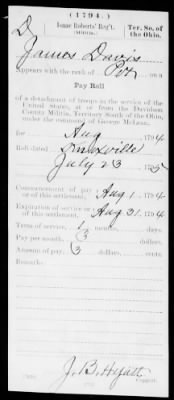 (1794.)
D Isaac Roberts' Reg't. Ter. So. of
(MILITIA.) the Ohio.
James Davis
Appears with the rank of Pvt on a
Pay Roll
of a detachment of troops in the service of the
United States, at or from the Davidson
County Militia, Territory South of the Ohio,
under the command of George McLean,
for Aug 1794
Roll dated Knoxville
July 23 1795
Commencement of pay
or of this settlement, Aug 1 1794
Expiration of service or
of this settlement, Aug 31 1794
Term of service, 1 months, days.
Pay per month, 3 dollars,
Amount of pay, 3 dollars, cents.
Remarks:
J. B. Hyatt
Copyist.